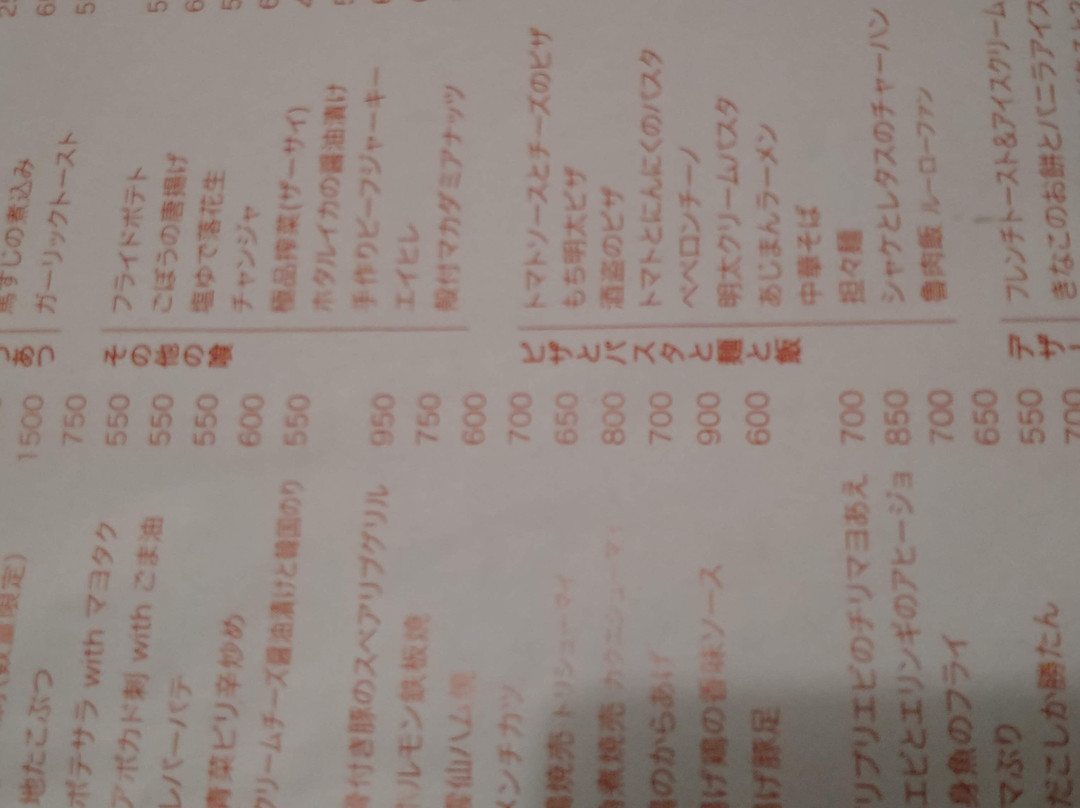 限定) 1500
地たこぶつ 750
ポテサラ with マヨタク 550
アボカド刺 with ごま油 550
レバーパテ 550
青菜ピリ辛炒め 600
クリームチーズ醤油漬けと韓国のり 550
骨付き豚のスペアリブグリル 950
ホルモン鉄板焼 750
雲仙ハム焼 600
メンチカツ 700
焼売 トリシューマイ 650
煮焼売 カクニシューマイ 800
のからあげ 700
げ鶏の香味ソース 900
げ豚足 600
リプリエビのチリマヨあえ 700
エビとエリンギのアヒージョ 850
身魚のフライ 700
マぶり 650
だこしか勝たん 550
700
あつ
馬すじの煮込み
ガーリックトースト
その他の喰
フライドポテト
ごぼうの唐揚げ
塩ゆで落花生
チャンジャ
極品搾菜(ザーサイ)
ホタルイカの醤油漬け
手作りビーフジャーキー
エイヒレ
殻付マカダミアナッツ
ピザとパスタと麺と飯
トマトソースとチーズのピザ
もち明太ピザ
酒盗のピザ
トマトとにんにくのパスタ
ペペロンチーノ
明太クリームパスタ
あじまんラーメン
中華そば
担々麺
シャケとレタスのチャーハン
魯肉飯 ルーローファン
デザー
フレンチトースト&アイスクリーム
きなこのお餅とバニラアイス